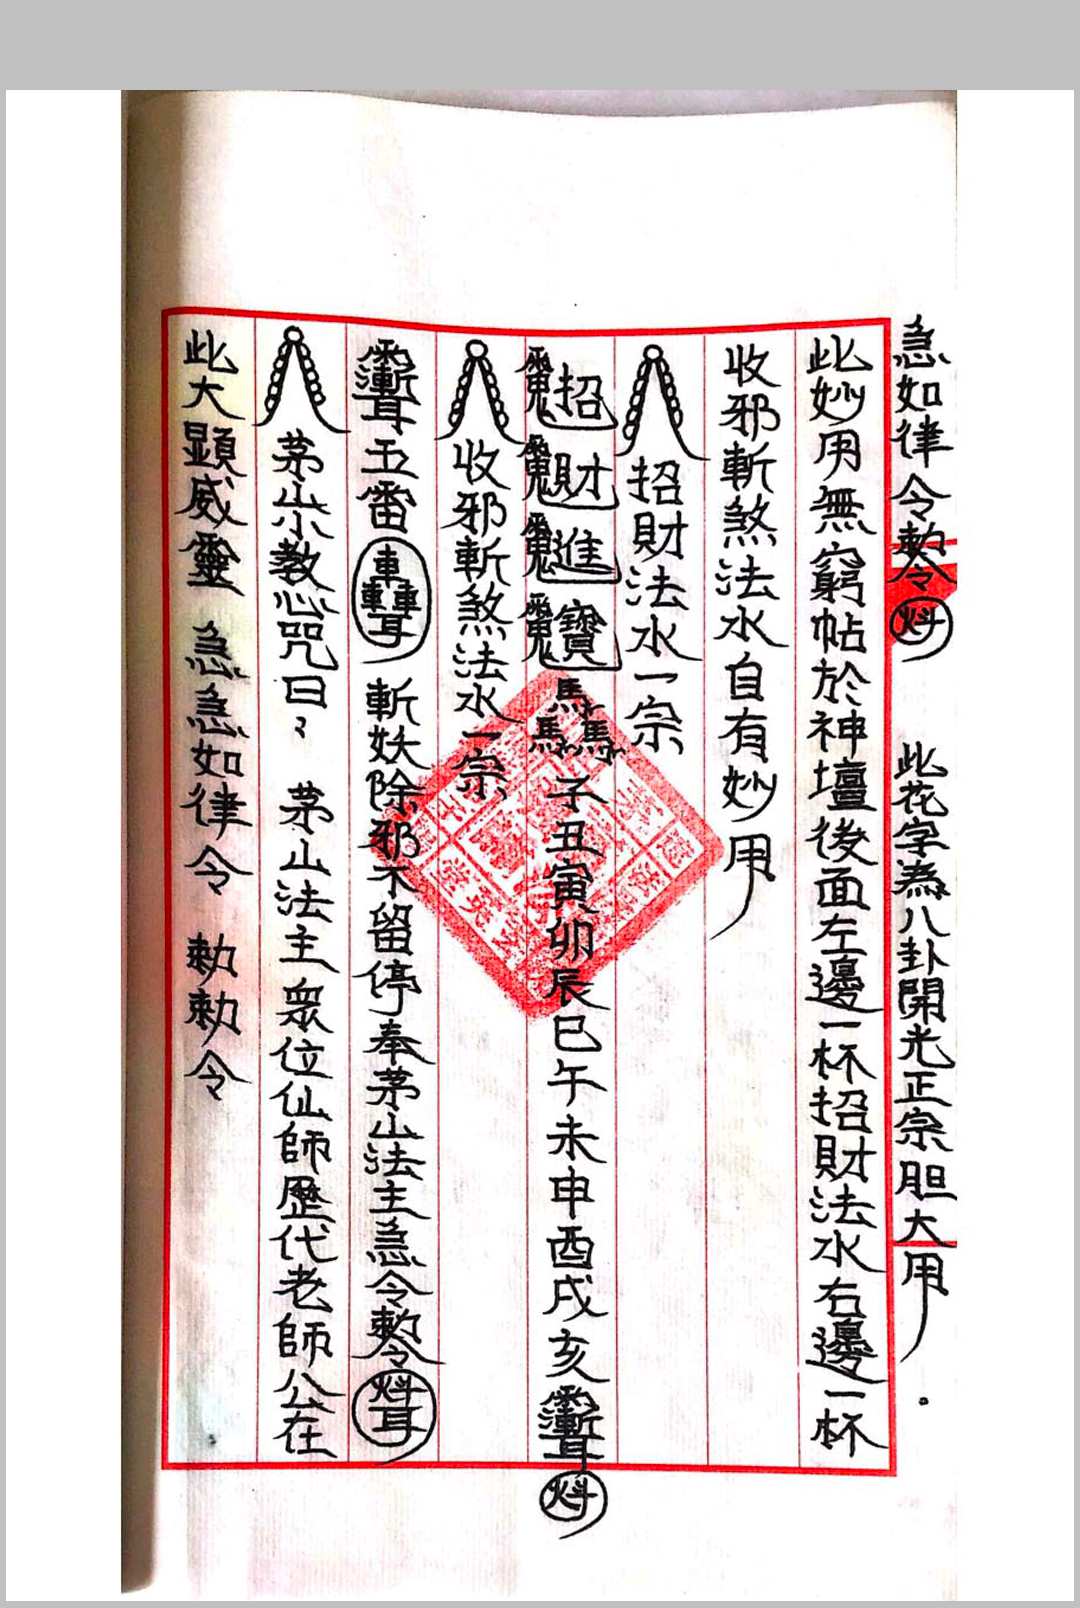 急如律令勅令 此花字為八卦開光正宗胆大用
此妙用無窮帖於神壇後面左邊一杯招財法水右邊一杯
收邪斬煞法水自有妙用
招財法水一宗
招財進寶 馬馬馬 子丑寅卯辰巳午未申酉戌亥
收邪斬煞法水一宗
五雷 斬妖除邪不留停奉茅山法主急令勅令
茅山小教心咒曰 茅山法主眾位仙師歷代老師公在
此大顕威靈 急急如律令 勅勅令